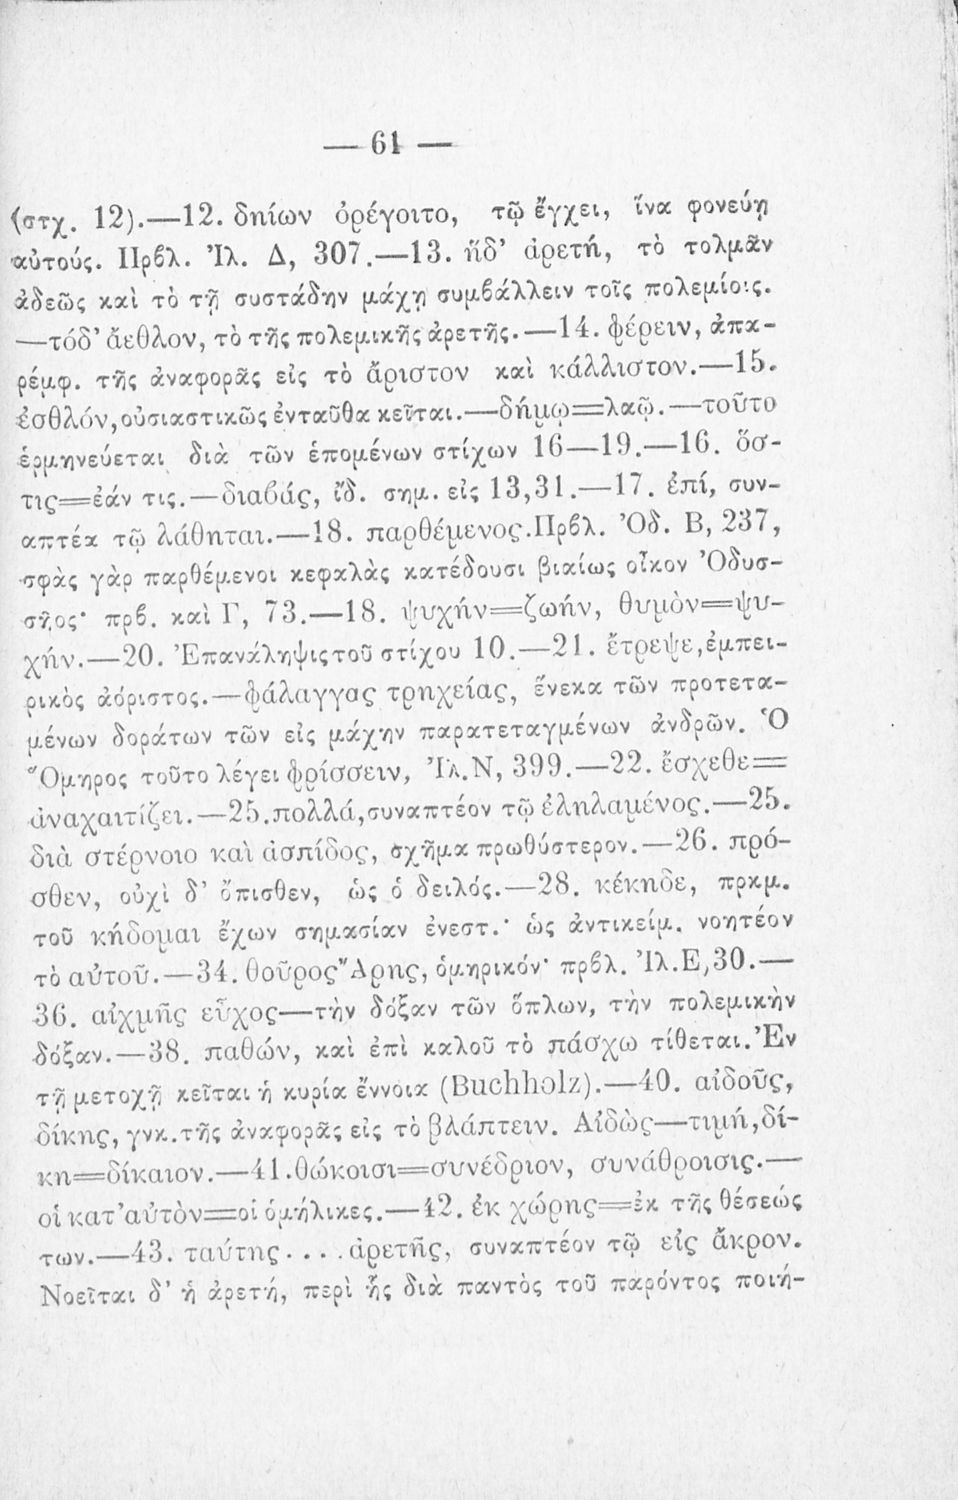 — 61 —
(στχ. 12).—12. δηίων ὀρέγοιτο, τῷ ἔγχει, ἵνα φονεύῃ
αὐτούς. Πρβλ. Ἰλ. Δ, 307.—13. ἥδ’ ἀρετή, τὸ τολμᾶν
ἀδεῶς καὶ τὸ τῇ συστάδην μάχῃ συμβάλλειν τοῖς πολεμίοις.
—τόδ’ ἄεθλον, τὸ τῆς πολεμικῆς ἀρετῆς.—14. φέρειν, ἀπα-
ρέμφ. τῆς ἀναφορᾶς εἰς τὸ ἄριστον καὶ κάλλιστον.—15.
ἐσθλόν, οὐσιαστικῶς ἐνταῦθα κεῖται.—δήμῳ=λαῷ.—τοῦτο
ἑρμηνεύεται διὰ τῶν ἑπομένων στίχων 16—19.—16. ὅσ-
τις=ἐάν τις.—διαβάς, ἴδ. σημ. εἰς 13,31.—17. ἐπί, συν-
απτέα τῷ λάθηται.—18. παρθέμενος. Πρβλ. Ὀδ. Β, 237,
σφὰς γὰρ παρθέμενοι κεφαλὰς κατέδουσι βιαίως οἶκον Ὀδυσ-
σῆος· πρβ. καὶ Γ, 73.—18. ψυχήν=ζωήν, θυμὸν=ψυ-
χήν.—20. Ἐπανάληψις τοῦ στίχου 10.—21. ἔτρεψε, ἐμπει-
ρικὸς ἀόριστος.—φάλαγγας τρηχείας, ἕνεκα τῶν προτετα-
μένων δοράτων τῶν εἰς μάχην παρατεταγμένων ἀνδρῶν. Ὁ
Ὅμηρος τοῦτο λέγει φρίσσειν, Ἰλ. Ν, 399.—22. ἔσχεθε=
ἀναχαιτίζει.—25. πολλά, συναπτέον τῷ ἐληλαμένος.—25.
διὰ στέρνοιο καὶ ἀσπίδος, σχῆμα πρωθύστερον.—26. πρό-
σθεν, οὐχὶ δ’ ὄπισθεν, ὡς ὁ δειλός.—28. κέκηδε, πρκμ.
τοῦ κήδομαι ἔχων σημασίαν ἐνεστ.· ὡς ἀντικείμ. νοητέον
τὸ αὐτοῦ.—34. θοῦρος Ἄρης, ὁμηρικόν· πρβλ. Ἰλ. Ε, 30.—
36. αἰχμῆς εὖχος—τὴν δόξαν τῶν ὅπλων, τὴν πολεμικὴν
δόξαν.—38. παθών, καὶ ἐπὶ καλοῦ τὸ πάσχω τίθεται. Ἐν
τῇ μετοχῇ κεῖται ἡ κυρία ἔννοια (Buchholz).—40. αἰδοῦς,
δίκης, γνκ. τῆς ἀναφορᾶς εἰς τὸ βλάπτειν. Αἰδὼς—τιμή, δί-
κη=δίκαιον.—41. θώκοισι=συνέδριον, συνάθροισις.—
οἱ κατ’ αὐτὸν=οἱ ὁμήλικες.—42. ἐκ χώρης=ἐκ τῆς θέσεώς
των.—43. ταύτης.... ἀρετῆς, συναπτέον τῷ εἰς ἄκρον.
Νοεῖται δ’ ἡ ἀρετή, περὶ ἧς διὰ παντὸς τοῦ παρόντος ποιή-